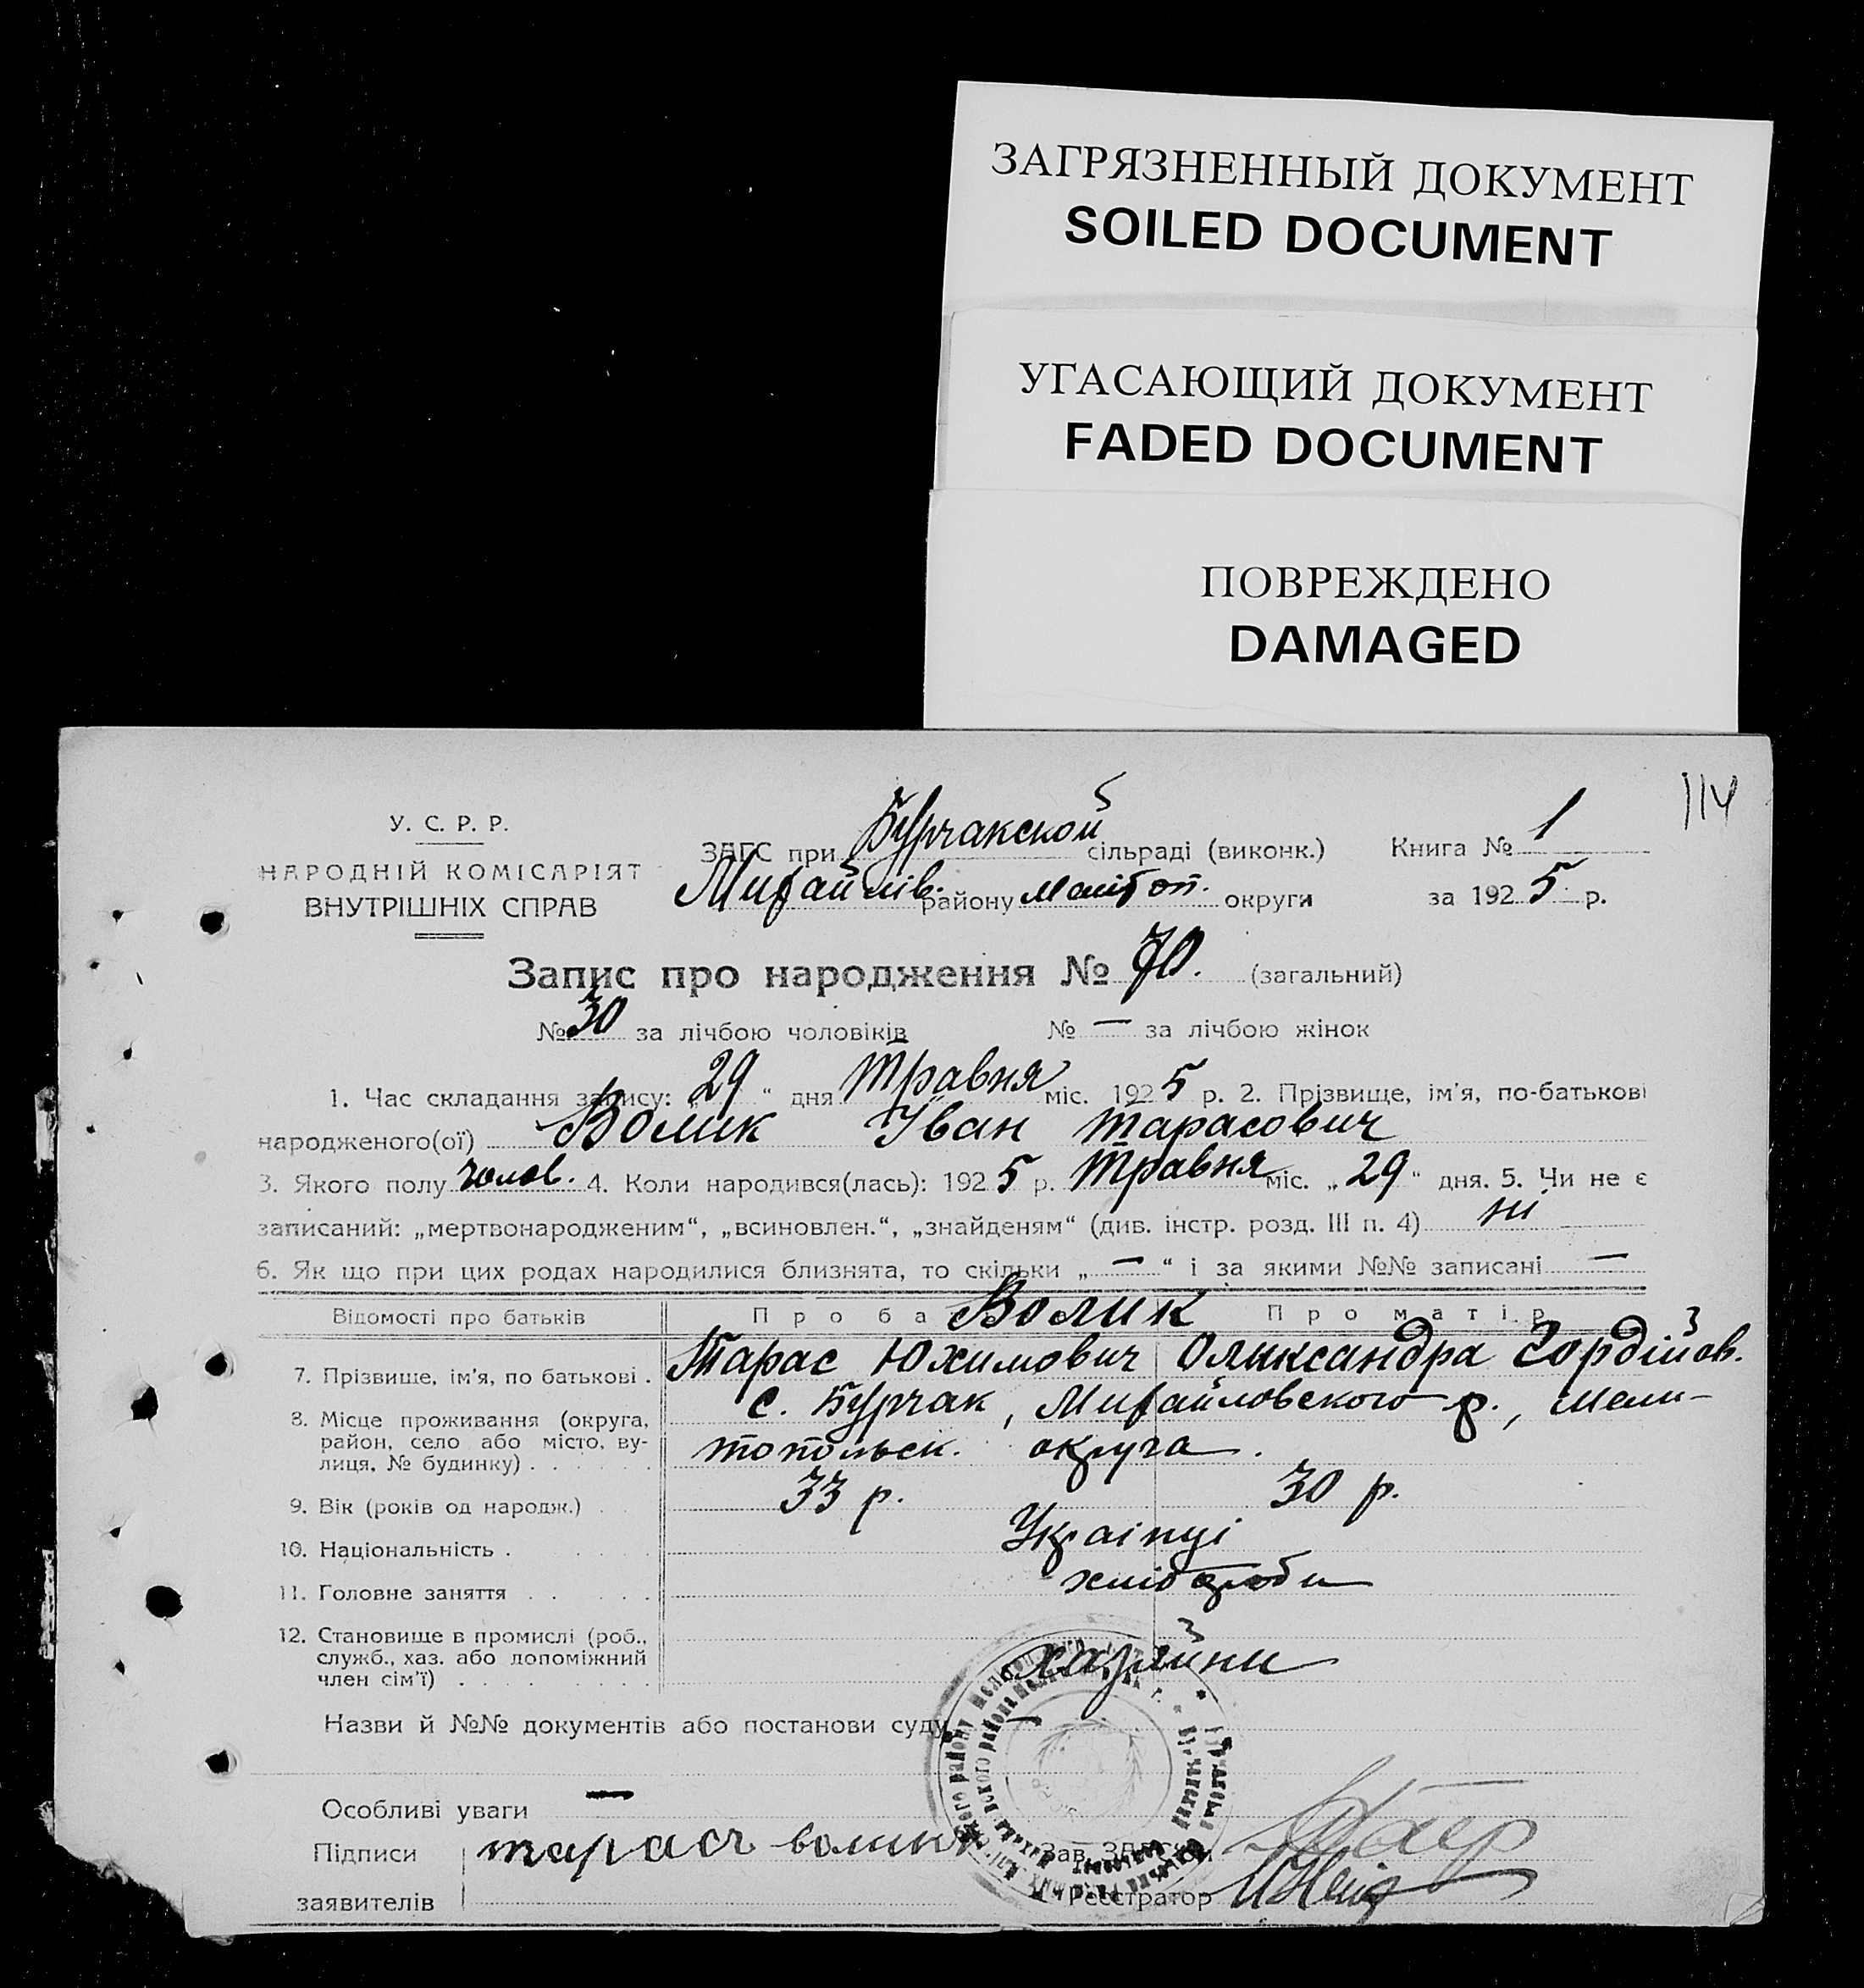 ЗАГРЯЗНЕННЫЙ ДОКУМЕНТ
SOILED DOCUMENT
УГАСАЮЩИЙ ДОКУМЕНТ
FADED DOCUMENT
ПОВРЕЖДЕНО
DAMAGED
114
У. С. Р. Р.
НАРОДНІЙ КОМІСАРІЯТ
ВНУТРІШНІХ СПРАВ
ЗАГС при Бурчакской сільраді (виконк.) Книга № 1
Михайлів. району Меліт оп. округи за 1925 р.
Запис про народження № 70. (загальний)
№ 30 за лічбою чоловіків № — за лічбою жінок
1. Час складання запису: „29“ дня Травня міс. 1925 р. 2. Прізвище, ім'я, по-батькові
народженого(ої) Волик Іван Тарасович
3. Якого полу чолов. 4. Коли народився(лась): 1925 р. Травня міс. „29“ дня. 5. Чи не є
записаний: „мертвонародженим“, „всиновлен.“, „знайденям“ (див. інстр. розд. III п. 4) ні
6. Як що при цих родах народилися близнята, то скільки „—“ і за якими №№ записані —
Відомості про батьків Про ба Волик Про матір
7. Прізвище, ім'я, по батькові . Тарас Юхимович Олександра Гордійов.
8. Місце проживання (округа, район, село або місто, ву-лиця, № будинку) с. Бурчак, Михайловского р., Мели-
топольск. округа.
9. Вік (років од народж.) 33 р. 30 р.
10. Національність . Украінці
11. Головне заняття хлібороби
12. Становище в промислі (роб.,
служб., хаз. або допоміжний
член сім'ї) хазяйни
Назви й №№ документів або постанови суду —
Особливі уваги —
Підписи тарась волик Зав. ЗАГСом
заявителів Реєстратор